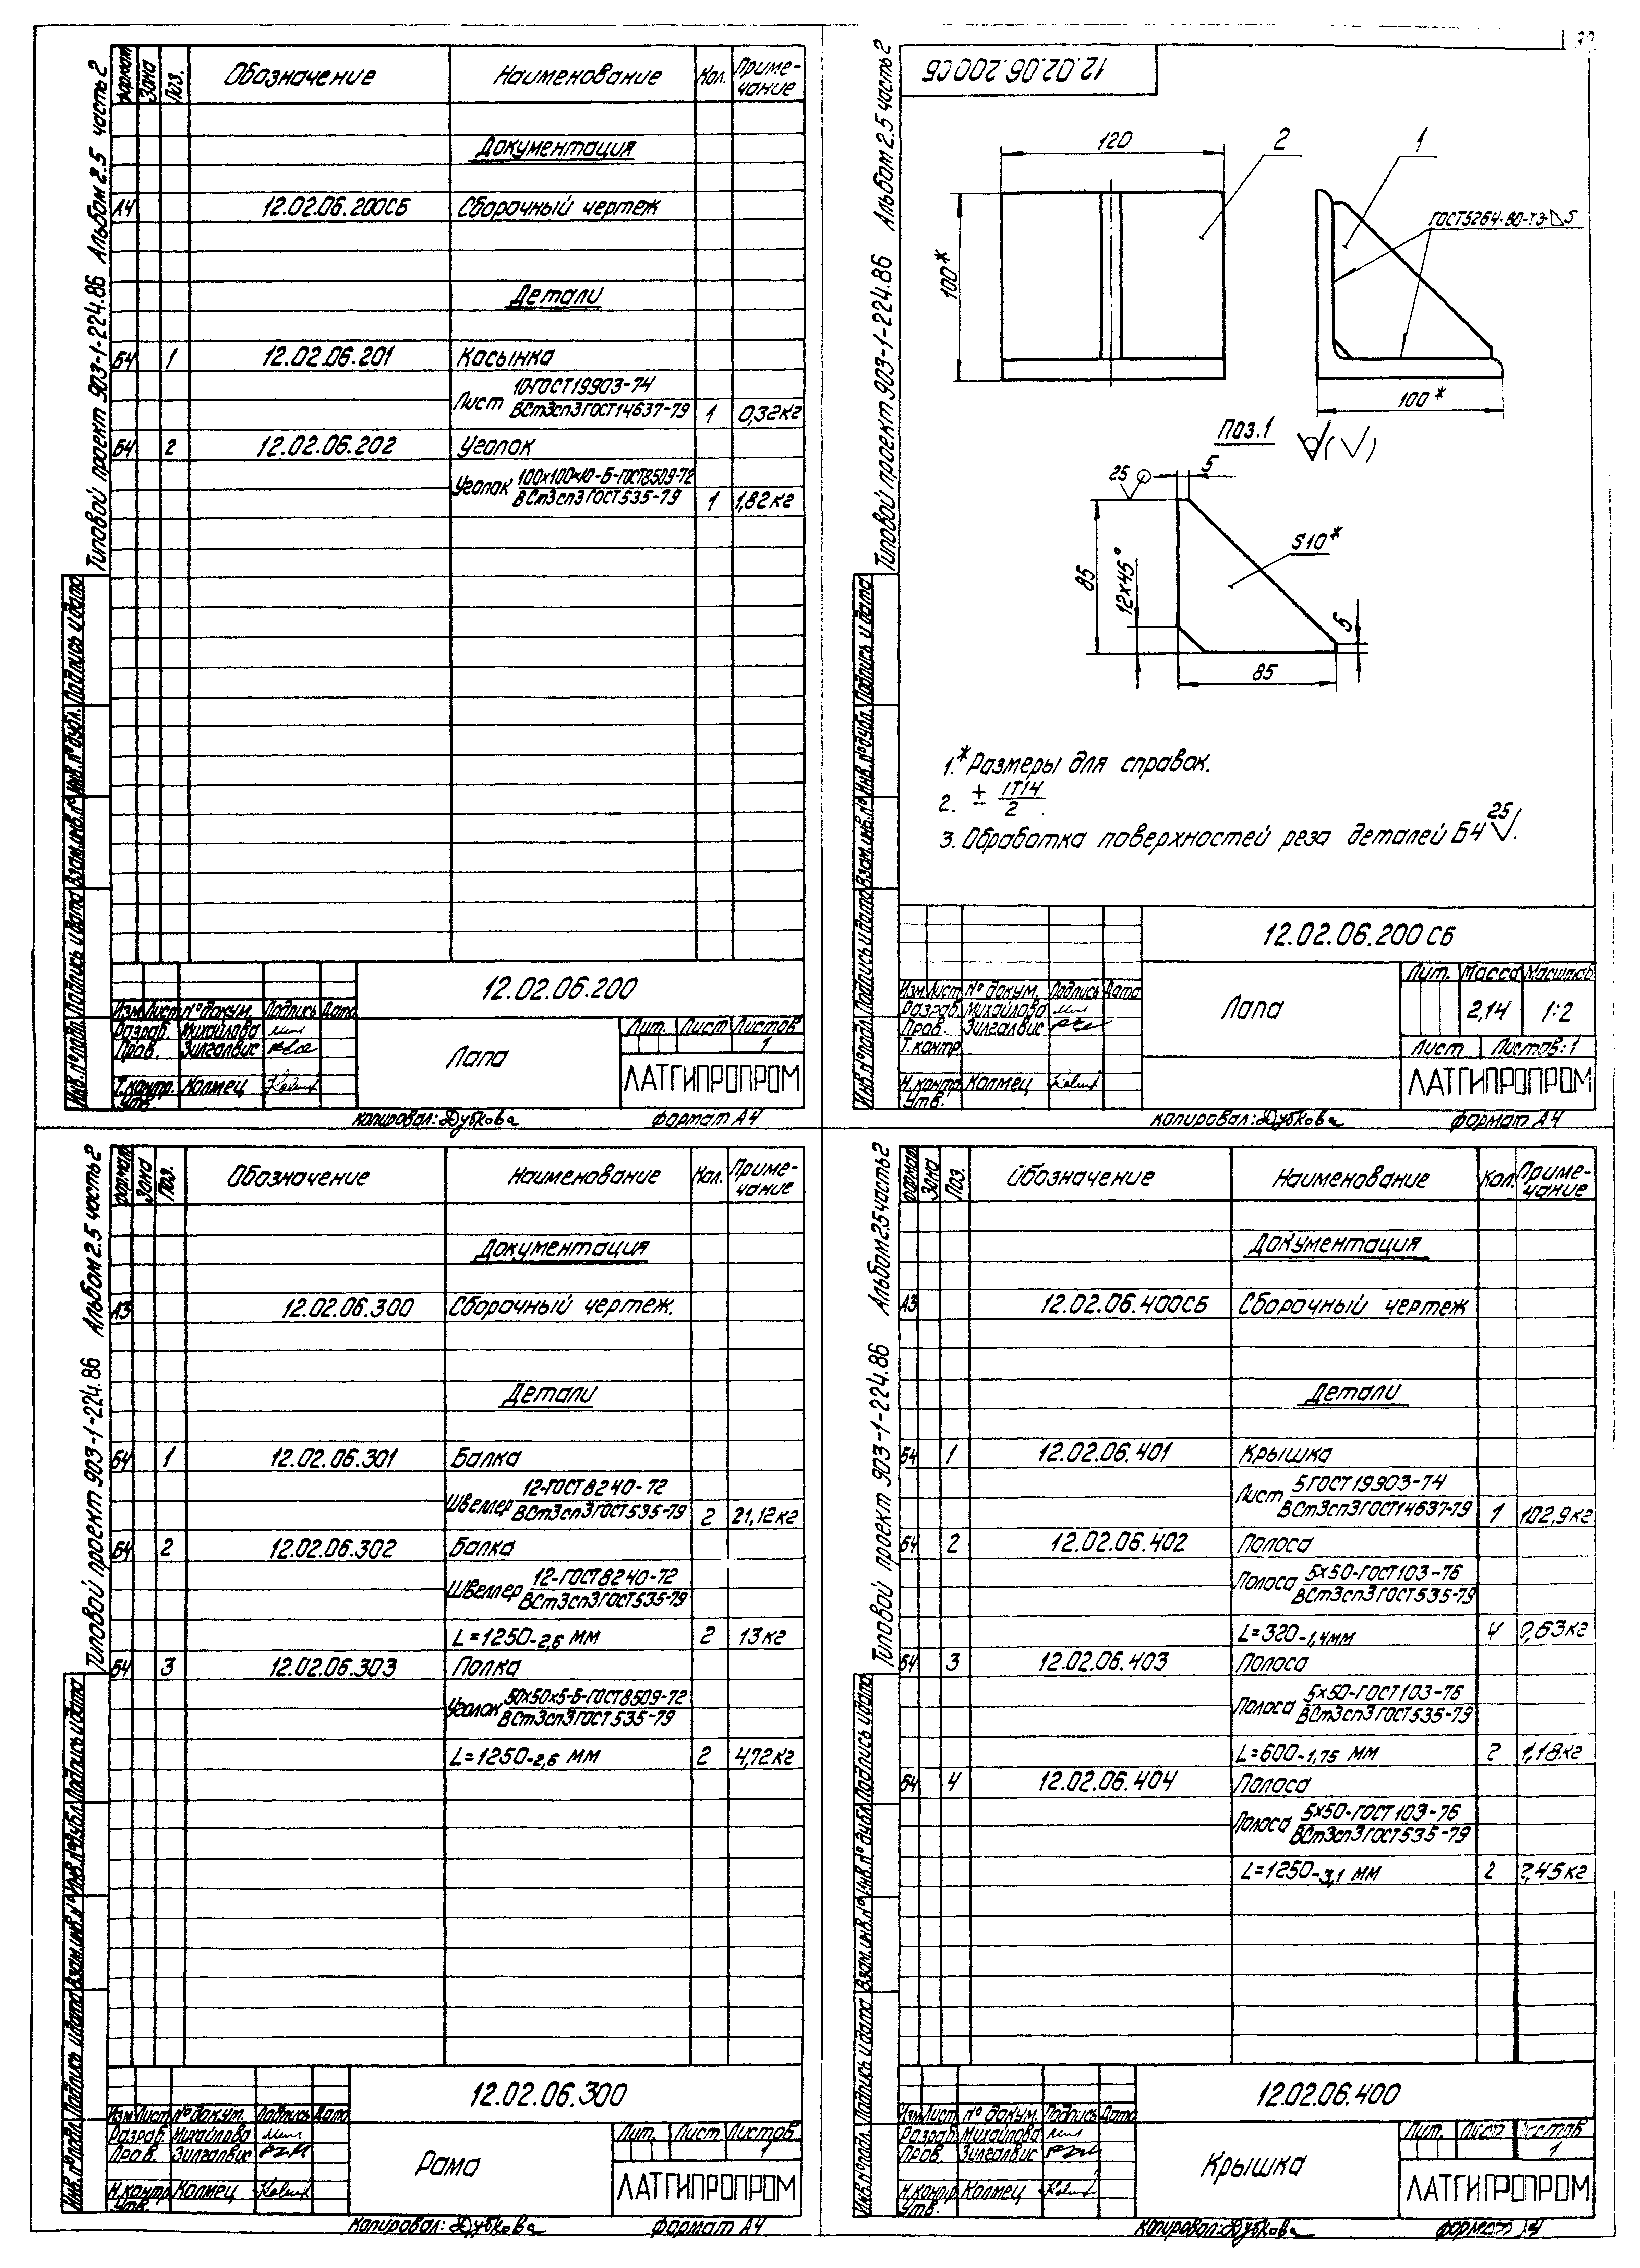 Типовой проект 903-1-224.86 Альбом 2.5 часть 2
формат Зона Поз. Обозначение Наименование Кол. Приме-
чание
Документация
А4 12.02.06.200СБ Сборочный чертеж
Детали
Б4 1 12.02.06.201 Косынка
Лист 10-ГОСТ19903-74
ВСт3сп3ГОСТ14637-79 1 0,32кг
Б4 2 12.02.06.202 Уголок
Уголок 100х100х10-Б-ГОСТ8509-72
ВСт3сп3ГОСТ535-79 1 1,82кг
Инв.№подл. Подпись и дата Взам.инв.№ Инв.№дубл. Подпись и дата
12.02.06.200
Изм Лист № докум. Подпись Дата
Разраб. Михайлова
Пров. Зилгалвис
Т.контр. Колмец
Утв.
Лапа
Лит. Лист Листов
1
ЛАТГИПРОПРОМ
Копировал: Дубкова формат А4
Типовой проект 903-1-224.86 Альбом 2.5 часть 2
12.02.06.200СБ
120
2
1
100*
ГОСТ5264-80-Т3-5
100*
Поз.1
25
5
S10*
85
12х45°
5
85
1.* Размеры для справок.
2. ± IT14
2 .
3. Обработка поверхностей реза деталей Б4 25.
Инв.№подл. Подпись и дата Взам.инв.№ Инв.№дубл. Подпись и дата
12.02.06.200 СБ
Изм Лист № докум. Подпись Дата
Разраб. Михайлова
Пров. Зилгалвис
Т.контр
Н.контр Колмец
Утв.
Лапа
Лит. Масса Масштаб
2,14 1:2
Лист Листов:1
ЛАТГИПРОПРОМ
Копировал: Дубкова формат А4
Типовой проект 903-1-224.86 Альбом 2.5 часть 2
формат Зона Поз. Обозначение Наименование Кол. Приме-
чание
Документация
А3 12.02.06.300 Сборочный чертеж.
Детали
Б4 1 12.02.06.301 Балка
Швеллер 12-ГОСТ8240-72
ВСт3сп3ГОСТ535-79 2 21,12кг
Б4 2 12.02.06.302 Балка
Швеллер 12-ГОСТ8240-72
ВСт3сп3ГОСТ535-79
L=1250-2,6 мм 2 13кг
Б4 3 12.02.06.303 Полка
Уголок 50х50х5-Б-ГОСТ8509-72
ВСт3сп3ГОСТ535-79
L=1250-2,6 мм 2 4,72кг
Инв.№подл. Подпись и дата Взам.инв.№ Инв.№дубл Подпись и дата
12.02.06.300
Изм Лист № докум. Подпись Дата
Разраб. Михайлова
Пров. Зилгалвис
Н.контр Колмец
Утв.
Рама
Лит. Лист Листов
1
ЛАТГИПРОПРОМ
Копировал: Дубкова формат А4
Типовой проект 903-1-224.86 Альбом 2.5 часть 2
формат Зона Поз. Обозначение Наименование Кол. Приме-
чание
Документация
А3 12.02.06.400СБ Сборочный чертеж
Детали
Б4 1 12.02.06.401 Крышка
Лист 5ГОСТ19903-74
ВСт3сп3ГОСТ14637-79 1 102,9кг
Б4 2 12.02.06.402 Полоса
Полоса 5х50-ГОСТ103-76
ВСт3сп3ГОСТ535-79
L=320-1,4мм 4 0,63кг
Б4 3 12.02.06.403 Полоса
Полоса 5х50-ГОСТ103-76
ВСт3сп3ГОСТ535-79
L=600-1,75 мм 2 1,18кг
Б4 4 12.02.06.404 Полоса
Полоса 5х50-ГОСТ103-76
ВСт3сп3ГОСТ535-79
L=1250-3,1 мм 2 2,45кг
Инв.№подл. Подпись и дата Взам.инв.№ Инв.№дубл Подпись и дата
12.02.06.400
Изм Лист № докум. Подпись Дата
Разраб. Михайлова
Пров. Зилгалвис
Н.контр Колмец
Утв.
Крышка
Лит. Лист Листов
1
ЛАТГИПРОПРОМ
Копировал: Дубкова формат А4